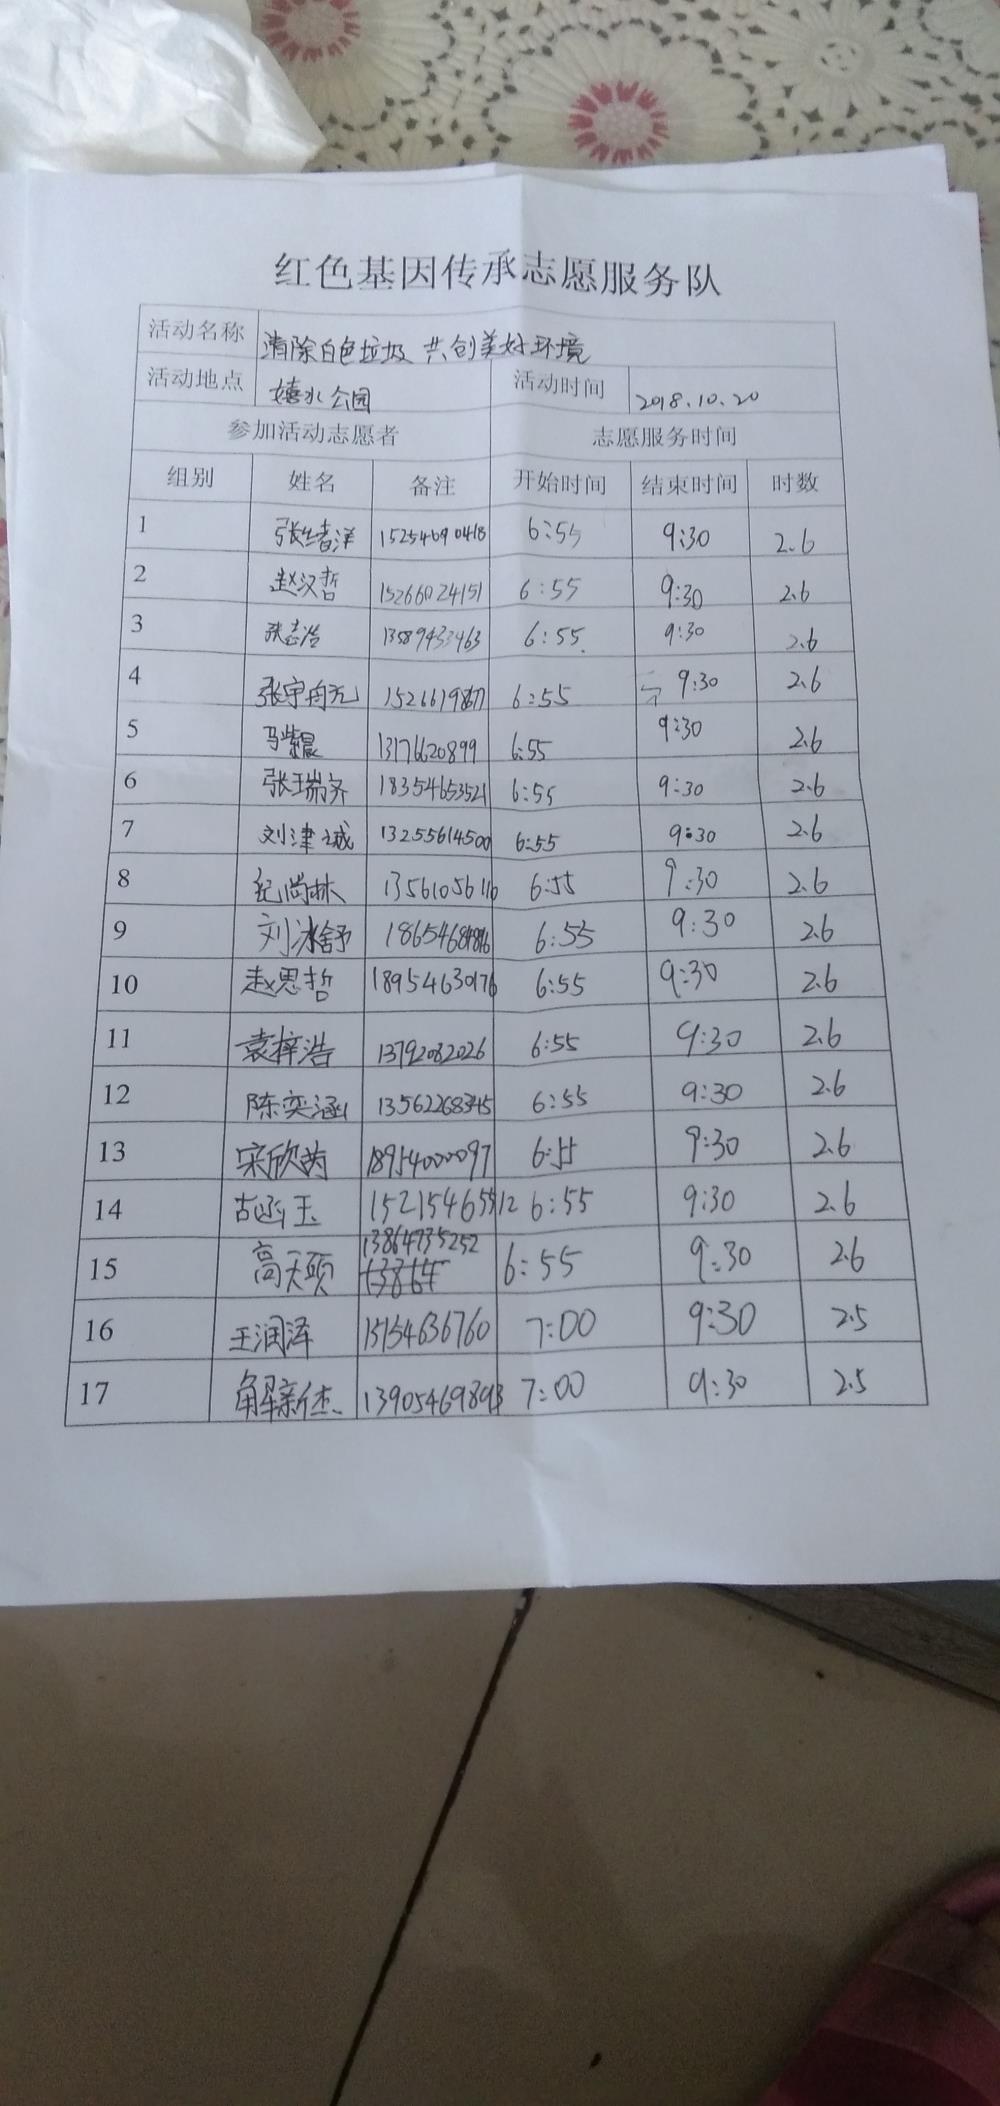 红色基因传承志愿服务队
活动名称 清除白色垃圾 共创美好环境
活动地点 嬉水公园 活动时间 2018.10.20
参加活动志愿者 志愿服务时间
组别 姓名 备注 开始时间 结束时间 时数
1 张绪洋 15254690418 6:55 9:30 2.6
2 赵汉哲 15266024151 6:55 9:30 2.6
3 张志浩 13589433463 6:55 9:30 2.6
4 6:55 9:30 2.6
5 马紫晨 13176620899 6:55 9:30 2.6
6 张瑞齐 18354653521 6:55 9:30 2.6
7 刘津诚 13255614500 6:55 9:30 2.6
8 纪尚林 13561056116 6:55 9:30 2.6
9 刘冰舒 6:55 9:30 2.6
10 赵思哲 18954630176 6:55 9:30 2.6
11 袁梓浩 13792082026 6:55 9:30 2.6
12 陈奕涵 13562268345 6:55 9:30 2.6
13 宋欣芮 18954000097 6:55 9:30 2.6
14 古函玉 6:55 9:30 2.6
15 高天颐 13864735252 6:55 9:30 2.6
16 王润泽 15154636760 7:00 9:30 2.5
17 解新杰 7:00 9:30 2.5